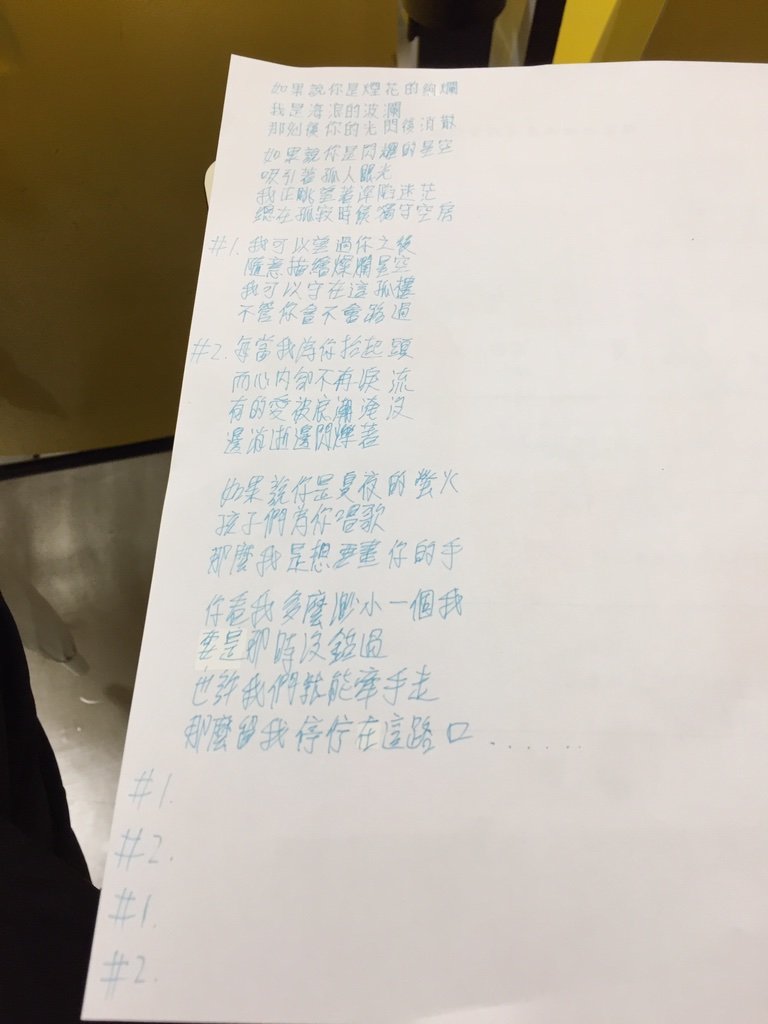 如果說你是煙花的絢爛
我是海浪的波瀾
那刻後你的光閃後消散
如果說你是閃耀的星空
吸引著孤人眼光
我正眺望著深陷迷茫
總在孤寂時候獨守空房
#1. 我可以望過你之後
隨意描繪燦爛星空
我可以守在這孤樓
不管你會不會路過
#2. 每當我為你抬起頭
而心內卻不再淚流
有的愛被浪潮淹沒
邊消逝邊閃爍著
如果說你是夏夜的螢火
孩子們為你唱歌
那麼我是想要畫你的手
你看我多麼渺小一個我
要是那時沒錯過
也許我們就能牽手走
那麼留我停佇在這路口.......
#1.
#2.
#1.
#2.